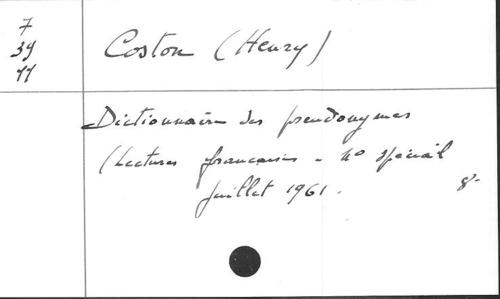 7
39
11
Coston (Henry)
Dictionnaire des pseudonymes
(Lectures françaises - no spécial
juillet 1961.
8°